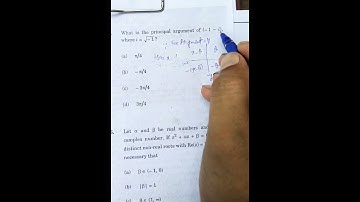 What is the principal argument of (– 1 – i),
where i = √–1 ?
(a) π/4
(b) – π/4
(c) – 3π/4
(d) 3π/4
Let α and β be real numbers and
complex number. If z² + αz + β =
distinct non-real roots with Re(z) =
necessary that
(a) β ∈ (–1, 0)
(b) |β| = 1
(c) β ∈ (1, ∞)